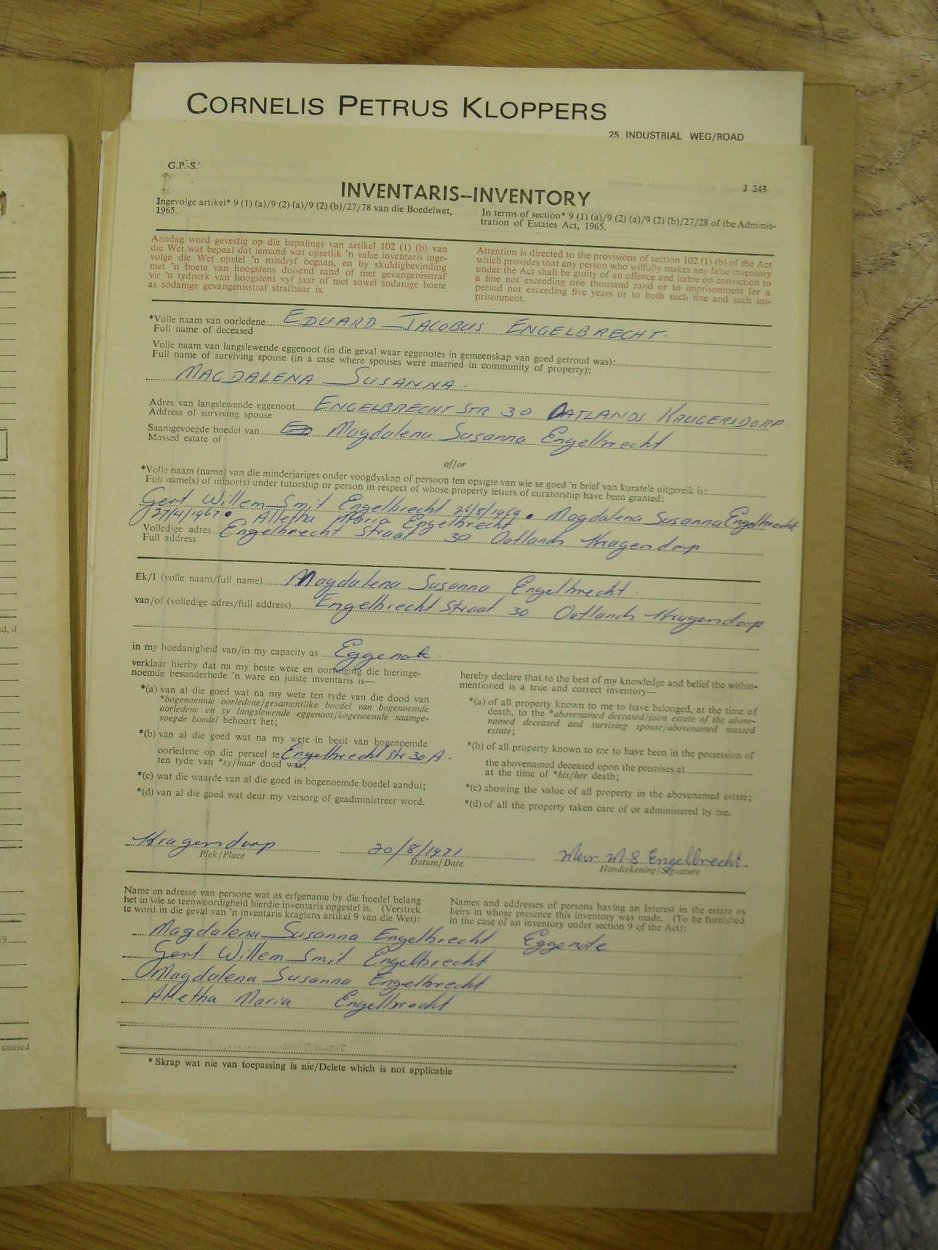 CORNELIS PETRUS KLOPPERS
25 INDUSTRIAL WEG/ROAD
G.P.-S.
J 243
INVENTARIS–INVENTORY
Ingevolge artikel* 9 (1) (a)/9 (2) (a)/9 (2) (b)/27/78 van die Boedelwet,
1965.
In terms of section* 9 (1) (a)/9 (2) (a)/9 (2) (b)/27/28 of the Adminis-
tration of Estates Act, 1965.
Aandag word gevestig op die bepalings van artikel 102 (1) (b) van
die Wet wat bepaal dat iemand wat opsetlik 'n valse inventaris inge-
volge die Wet opstel 'n misdryf begaan, en by skuldigbevinding
met 'n boete van hoogstens duisend rand of met gevangenisstraf
vir 'n tydperk van hoogstens vyf jaar of met sowel sodanige boete
as sodanige gevangenisstraf strafbaar is.
Attention is directed to the provisions of section 102 (1) (b) of the Act
which provides that any person who wilfully makes any false inventory
under the Act shall be guilty of an offence and liable on conviction to
a fine not exceeding one thousand rand or to imprisonment for a
period not exceeding five years or to both such fine and such im-
prisonment.
*Volle naam van oorledene EDUARD JACOBUS ENGELBRECHT
Full name of deceased
Volle naam van langslewende eggenoot (in die geval waar eggenotes in gemeenskap van goed getroud was):
Full name of surviving spouse (in a case where spouses were married in community of property):
MAGDALENA SUSANNA.
Adres van langslewende eggenoot ENGELBRECHT STR 30 OATLANDS KRUGERSDORP
Address of surviving spouse
Saamgevoegde boedel van Magdalena Susanna Engelbrecht
Massed estate of
of/or
*Volle naam (name) van die minderjariges onder voogdyskap of persoon ten opsigte van wie se goed 'n brief van kuratele uitgereik is:
Full name(s) of minor(s) under tutorship or person in respect of whose property letters of curatorship have been granted:
Gert Willem Smit Engelbrecht Magdalena Susanna Engelbrecht
Alletha Maria Engelbrecht
Volledige adres Engelbrecht Straat 30 Oatlands Krugersdorp
Full address
Ek/I (volle naam/full name) Magdalena Susanna Engelbrecht
van/of (volledige adres/full address) Engelbrecht Straat 30 Oatlands Krugersdorp
in my hoedanigheid van/in my capacity as Eggenote
verklaar hierby dat na my beste wete en oortuiging die hieringe-
noemde besonderhede 'n ware en juiste inventaris is—
*(a) van al die goed wat na my wete ten tyde van die dood van
*bogenoemde oorledene/gesamentlike boedel van bogenoemde
oorledene en sy langslewende eggenoot/bogenoemde saamge-
voegde boedel behoort het;
*(b) van al die goed wat na my wete in besit van bogenoemde
oorledene op die perseel te Engelbrecht Str 30 A.
ten tyde van *sy/haar dood was;
*(c) wat die waarde van al die goed in bogenoemde boedel aandui;
*(d) van al die goed wat deur my versorg of geadministreer word.
hereby declare that to the best of my knowledge and belief the within-
mentioned is a true and correct inventory—
*(a) of all property known to me to have belonged, at the time of
death, to the *abovenamed deceased/joint estate of the above-
named deceased and surviving spouse/abovenamed massed
estate;
*(b) of all property known to me to have been in the possession of
the abovenamed deceased upon the premises at
at the time of *his/her death;
*(c) showing the value of all property in the abovenamed estate;
*(d) of all the property taken care of or administered by me.
Krugersdorp 20/8/1971 Mevr M-S Engelbrecht
Plek/Place Datum/Date Handtekening/Signature
Name en adresse van persone wat as erfgename by die boedel belang
het in wie se teenwoordigheid hierdie inventaris opgestel is. (Verstrek
te word in die geval van 'n inventaris kragtens artikel 9 van die Wet):
Names and addresses of persons having an interest in the estate as
heirs in whose presence this inventory was made. (To be furnished
in the case of an inventory under section 9 of the Act):
Magdalena Susanna Engelbrecht Eggenote
Gert Willem Smit Engelbrecht
Magdalena Susanna Engelbrecht
Alletha Maria Engelbrecht
* Skrap wat nie van toepassing is nie/Delete which is not applicable
caused